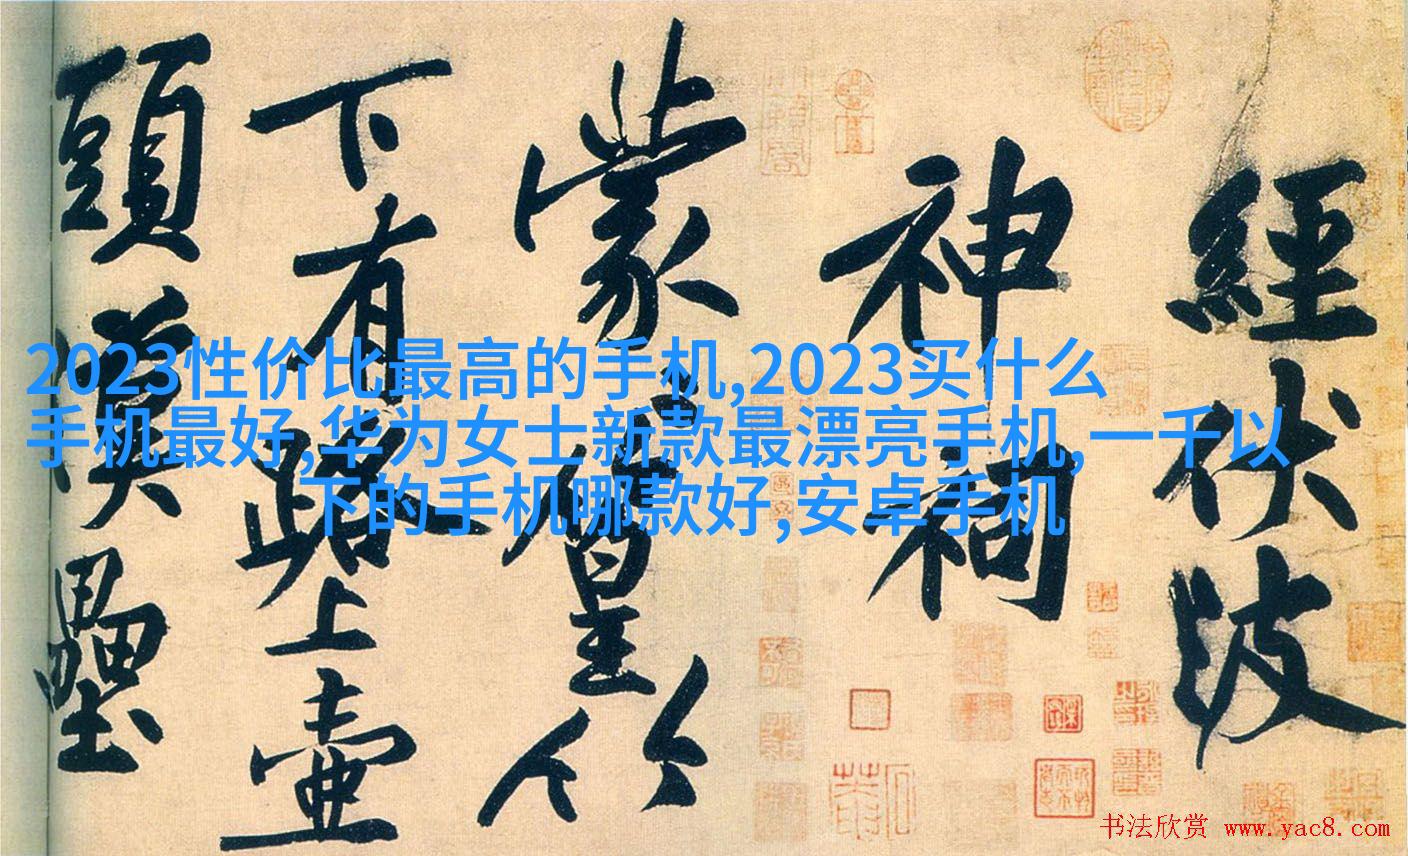 經伏波
神祠
蒙〻篁竹
下有路上壺
頭漢壘
2023性价比最高的手机,2023买什么
手机最好,华为女士新款最漂亮手机,一千以
下的手机哪款好,安卓手机
书法欣赏 www.yac8.com